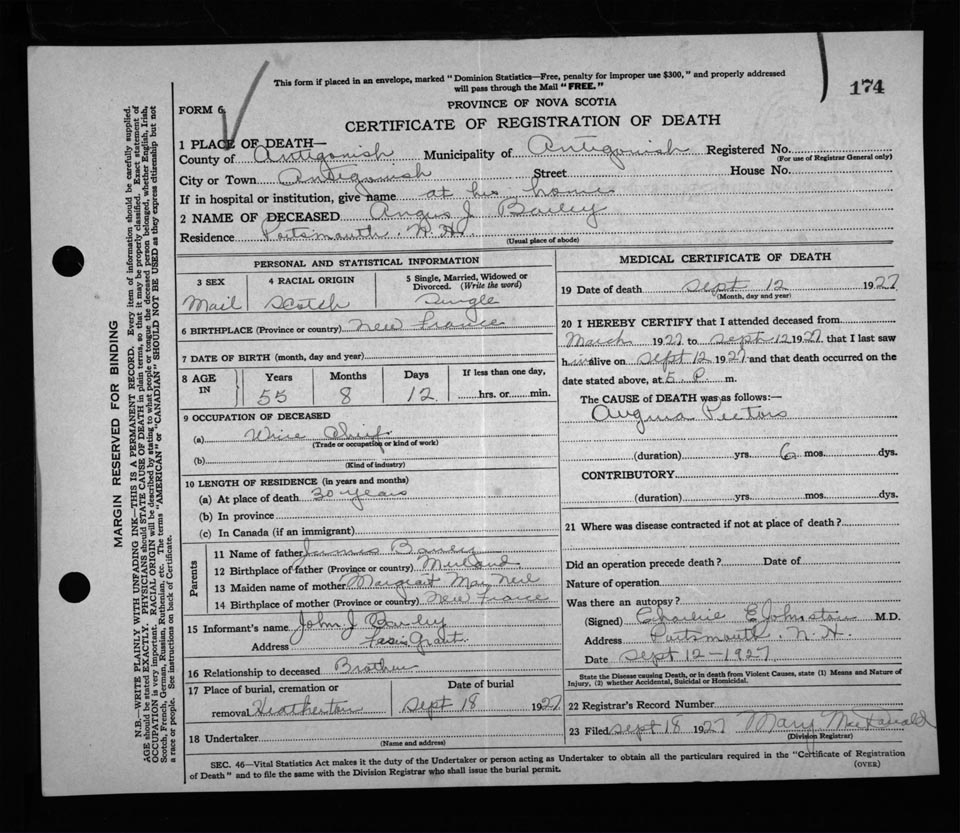 This form if placed in an envelope, marked "Dominion Statistics—Free, penalty for improper use $300," and properly addressed
will pass through the Mail "FREE."
174
PROVINCE OF NOVA SCOTIA
FORM 6
CERTIFICATE OF REGISTRATION OF DEATH
1 PLACE OF DEATH—
County of Antigonish Municipality of Antigonish Registered No.
(For use of Registrar General only)
City or Town Antigonish Street House No.
If in hospital or institution, give name at his home
2 NAME OF DECEASED Angus J Bailey
Residence Portsmouth. N. H.
(Usual place of abode)
PERSONAL AND STATISTICAL INFORMATION
3 SEX 4 RACIAL ORIGIN 5 Single, Married, Widowed or Divorced. (Write the word)
Mail Scotch Single
6 BIRTHPLACE (Province or country) New France
7 DATE OF BIRTH (month, day and year)
8 AGE IN Years Months Days If less than one day,
55 8 12 hrs. or min.
9 OCCUPATION OF DECEASED
(a) Wire Chief
(Trade or occupation or kind of work)
(b)
(Kind of industry)
10 LENGTH OF RESIDENCE (in years and months)
(a) At place of death 30 years
(b) In province
(c) In Canada (if an immigrant)
Parents
11 Name of father James Bailey
12 Birthplace of father (Province or country)
13 Maiden name of mother Margaret Mac Neil
14 Birthplace of mother (Province or country) New France
15 Informant's name John J Bailey
Address Grant
16 Relationship to deceased Brother
17 Place of burial, cremation or Date of burial
removal Heatherton Sept 18 1927
18 Undertaker
(Name and address)
MEDICAL CERTIFICATE OF DEATH
19 Date of death Sept 12 1927
(Month, day and year)
20 I HEREBY CERTIFY that I attended deceased from
March 1927 to Sept 12 1927, that I last saw
him alive on Sept 12 1927 and that death occurred on the
date stated above, at 5 P m.
The CAUSE of DEATH was as follows:—
Augina Pectoris
(duration) yrs. 6 mos. dys.
CONTRIBUTORY
(duration) yrs. mos. dys.
21 Where was disease contracted if not at place of death?
Did an operation precede death? Date of
Nature of operation
Was there an autopsy?
(Signed) Charlie E Johnston M.D.
Address Portsmouth. N. H.
Date Sept 12-1927
State the Disease causing Death, or in death from Violent Causes, state (1) Means and Nature of
Injury, (2) whether Accidental, Suicidal or Homicidal.
22 Registrar's Record Number
23 Filed Sept 18 1927 Mary MacDonald
(Division Registrar)
SEC. 46—Vital Statistics Act makes it the duty of the Undertaker or person acting as Undertaker to obtain all the particulars required in the "Certificate of Registration
of Death" and to file the same with the Division Registrar who shall issue the burial permit.
(OVER)
MARGIN RESERVED FOR BINDING
N.B.—WRITE PLAINLY WITH UNFADING INK—THIS IS A PERMANENT RECORD. Every item of information should be carefully supplied.
AGE should be stated EXACTLY. PHYSICIANS should STATE CAUSE OF DEATH in plain terms, so that it may be properly classified. Exact statement of
OCCUPATION is very important. RACIAL ORIGIN will be described by stating to what people or tongue the deceased person belonged, whether English, Irish,
Scotch, French, German, Russian, Ruthenian, etc. The terms "AMERICAN" or "CANADIAN" SHOULD NOT BE USED as they express citizenship but not
a race or people. See instructions on back of Certificate.